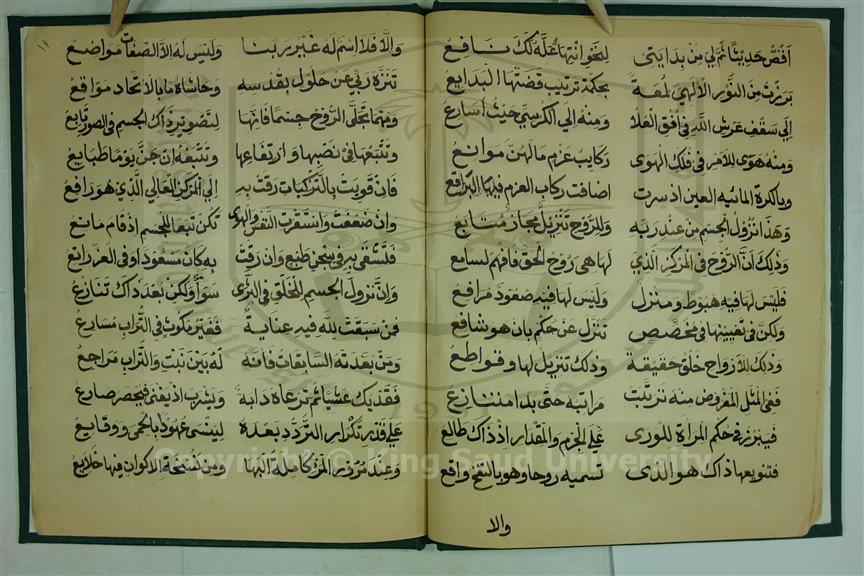 اقص حديثا تم لي من بدايتي لنحو انتهائي عله لك نافع
برزت من النور الالهي لمعة بحكمة ترتيب قضتها البدايع
الي سقف عرش الله في افق العلا ومنه الي الكرسي حيث اسارع
ومنه هوى للامر في فلك الهوى ركايب عزم مالهن موانع
وبالكرة المائيه العين اذ سرت اضافت ركاب العزم فيها البراقع
وهذا نزول الجسم من عند ربه وللروح تنزيل مجاز متابع
وذلك ان الروح في المركز الذي لها هي روح الحق فافهم لسامع
فليس لها فيه هبوط ومنزل وليس لها فيه صعود مرافع
ولكن في تعيينها في مخصص تنزل عن حكم بان هو شافع
وذلك للارواح خلق حقيقة وذلك تنزيل لها وقواطع
ففي المثل المفروض منه تربت مراتبه حتى بدا متنازع
فيبرز في حكم المرآة للورى علي الجرم والمقدار اذ ذاك طالع
فتنويعها ذاك هو الذي تسميه روحا وهو بالنفخ واقع
والا
١٢
والا فلا اسم له غير ربنا وليس له الا الصفات مواضع
تنزه ربي عن حلول بقدسه وحاشاه ما بالاتحاد مواقع
ومهما تجلى الروح جسما فانها لتصوير ذاك الجسم في الصور تابع
وتتبعها في نصبها وارتفاعها وتتبعه ان جن يوما طبايع
فان قويت بالتزكيات رقت به الي المركز العالي الذي هو رافع
وان ضعفت واستقرت النفس والهوى تكن تبعا للجسم اذ قام مانع
فتشقى به في سجن طبع وان رقت به كان مسعودا وفي العز راتع
وان نزول الجسم للخلق في الثرى سوآ ولكن بعد ذاك تنازع
فمن سبقت لله فيه عناية ففي مكوث في التراب مسارع
ومن بعدته السابقات فانه له بين نبت والتراب مراجع
فقد يك عشبا ثم ترعاه دابة ويشرب اذ يفنى فيحصر صارع
على قدر تكرار التردد بعده لينسى عهودا بالحمى ووقايع
وعند مرور المرء كاملة اليها ومن نسخة الاكوان فيها خلايع
Copyright © King Saud University
1957